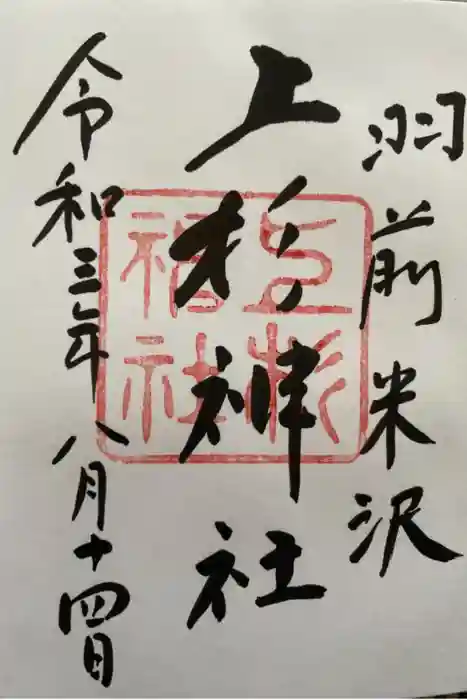 羽前米沢
上杉神社
令和三年八月十四日
上杉神社